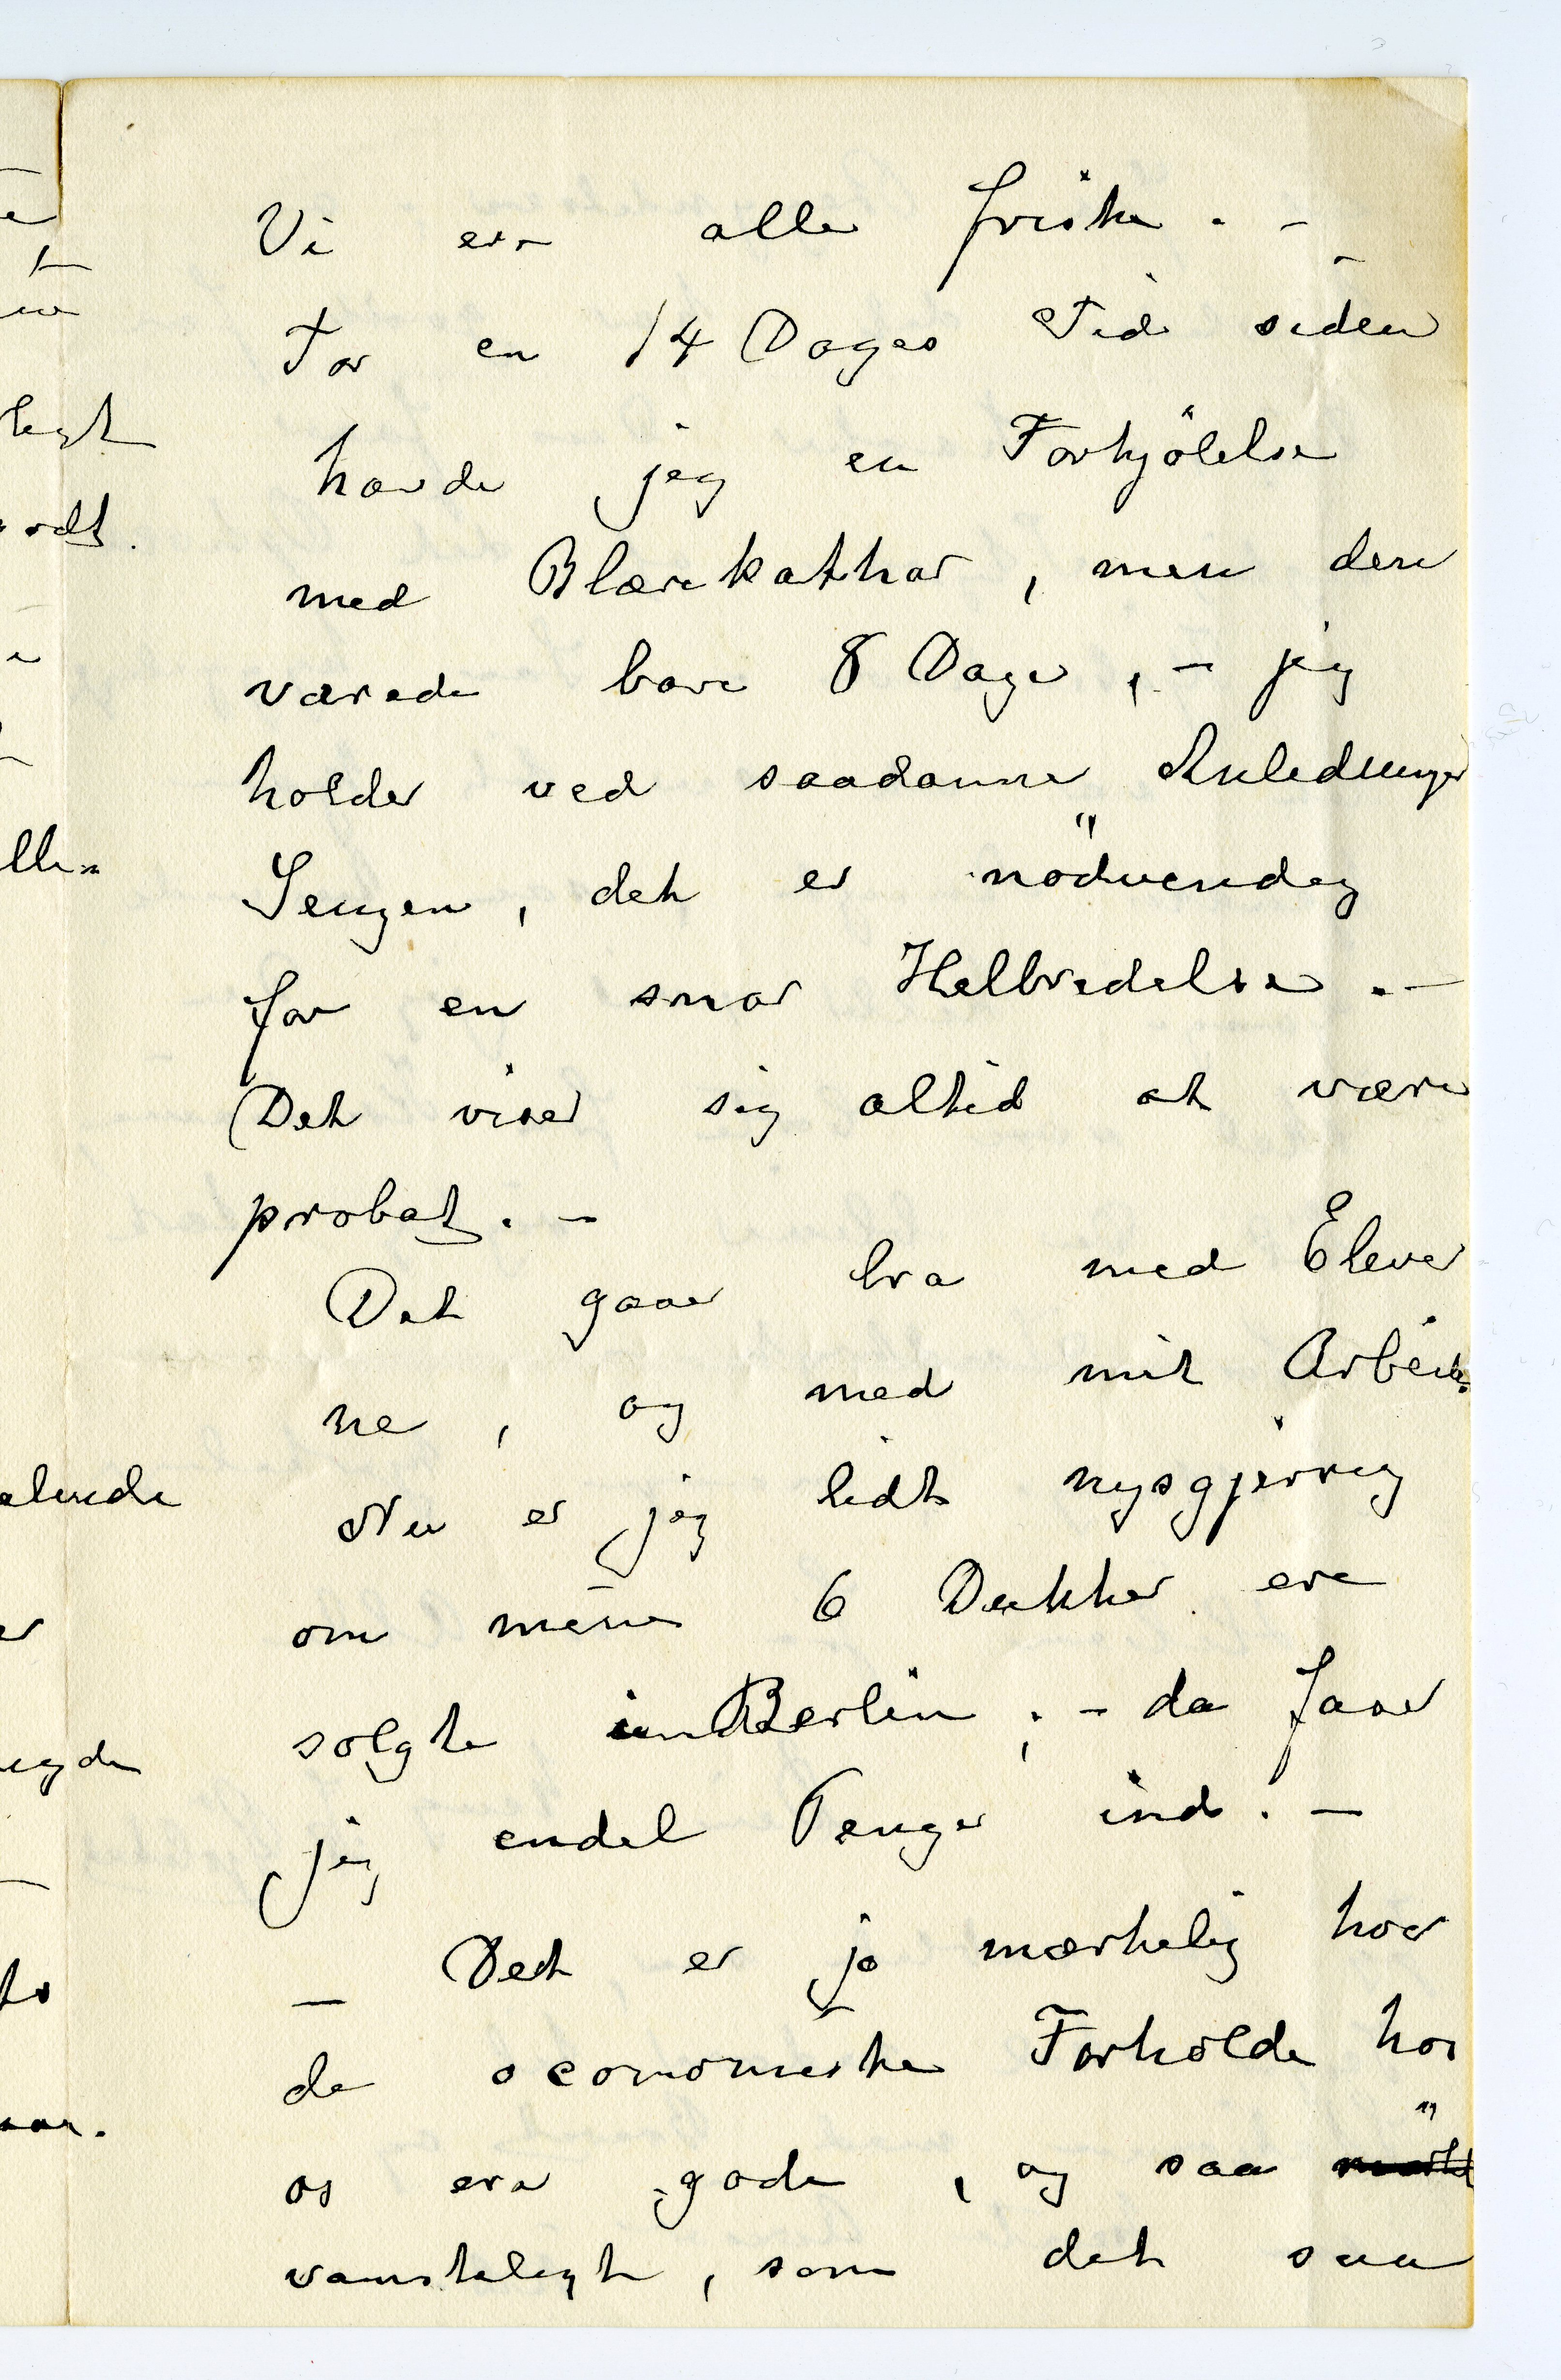 Vi ere alle friske. –
For en 14 Dages Tid siden
havde jeg en Forkjölelse
med Blærekathar, men den
varede bare 8 Dage, – jeg
holder ved saadanne Anledninger
Sengen, det er nödvendig
for en snar Helbredelse. –
Det viser sig altid at være
probat. –
Det gaar bra med Elever
ne, og med mit Arbeide.
Nu er jeg lidt nysgjerrig
om mine 6 Dukker ere
solgte i Berlin; – da faar
jeg endel Penge ind. –
– Det er jo mærkelig hvor
de oeconomiske Forholde hos
os ere gode, og saa
vanskeligt, som det saa